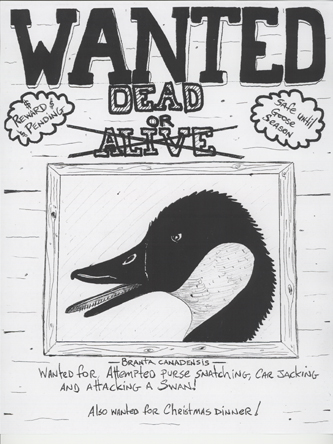 WANTED
DEAD
OR
ALIVE
$ REWARD $
PENDING
Safe until
Goose
Season
BRANTA CANADENSIS
WANTED FOR Attempted purse snatching, car jacking
and attacking a Swan!
Also wanted for Christmas dinner!